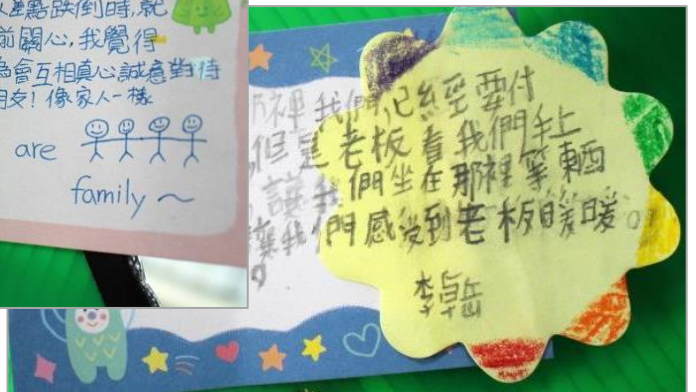 差點跌倒時,就
前關心,我覺得
會互相真心誠意對待
朋友!像家人一樣
are
family~
裡我們已經要付
但是老板看我們手上
讓我們坐在那裡等東西
讓我們感受到老板暖暖。
李岳